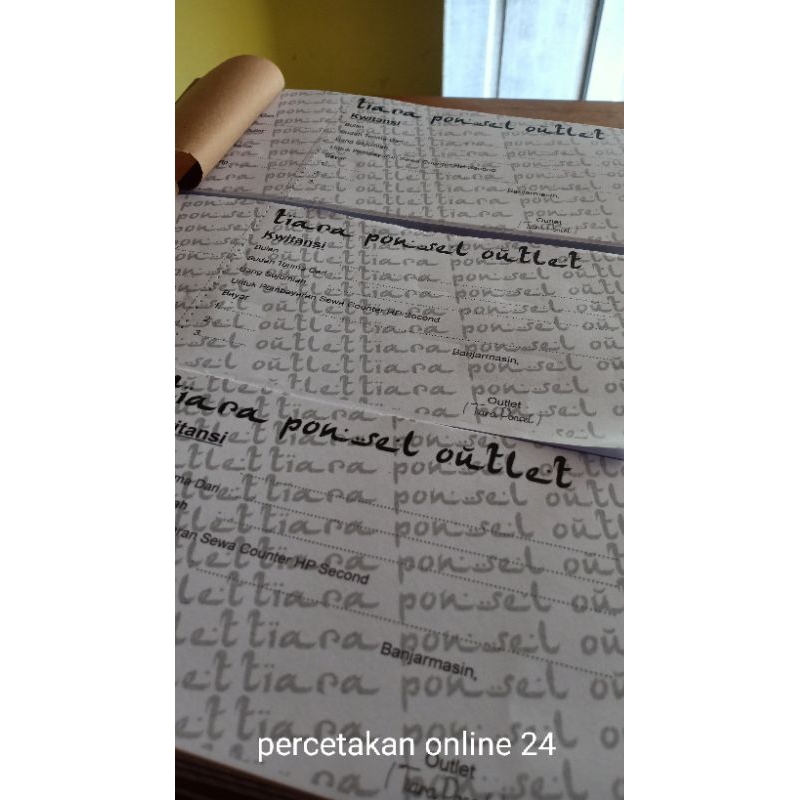 tiara ponsel outlet
Kwitansi
Bulan
Sudah Terima Dari
Uang Sejumlah
Bayar
1.
2.
3.
Banjarmasin,
Outlet
(Tiara Ponsel)
tiara ponsel outlet
Kwitansi
Bulan
Sudah Terima Dari
Uang Sejumlah
Untuk Pembayaran Sewa Counter HP Second
Bayar
1.
2.
3.
Banjarmasin,
Outlet
(Tiara Ponsel)
tiara ponsel outlet
itansi
ma Dari
ah
ran Sewa Counter HP Second
Banjarmasin,
Outlet
percetakan online 24